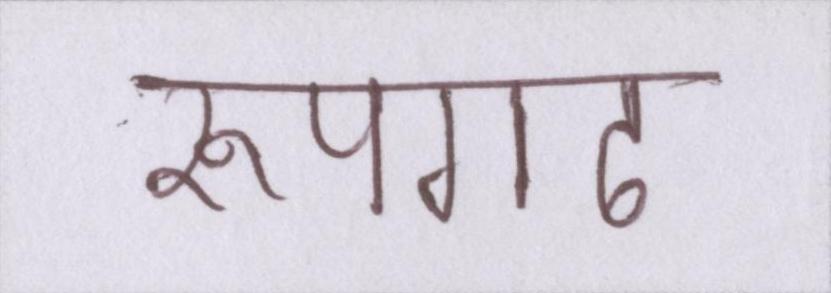 रूपगढ